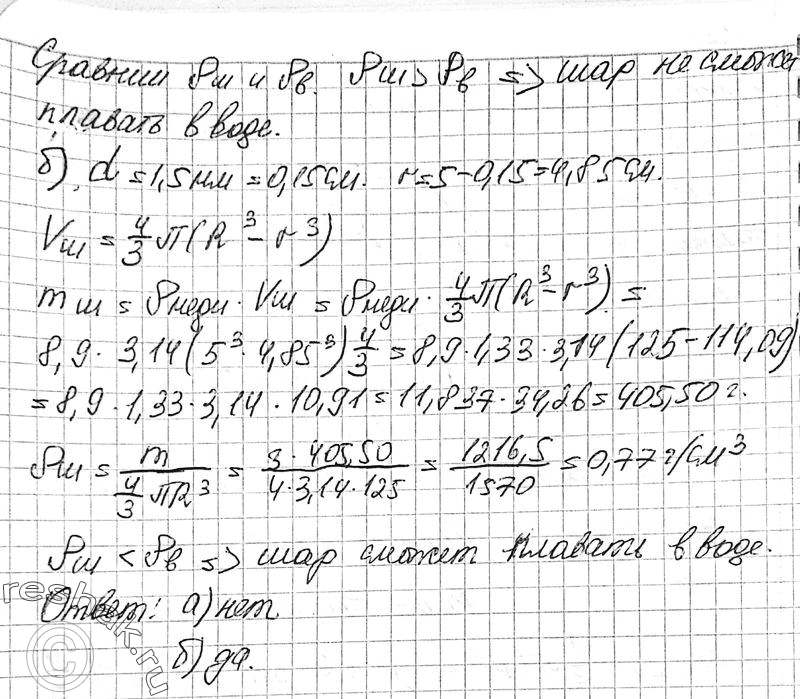 Сравним ρш и ρв. ρш > ρв => шар не сможет
плавать в воде.
б) d = 1,5 мм = 0,15 см. r = 5 - 0,15 = 4,85 см.
Vш = 4/3 π(R³ - r³)
mш = ρмеди · Vш = ρмеди · 4/3 π(R³ - r³) =
8,9 · 3,14 (5³ · 4,85³) 4/3 = 8,9 · 1,33 · 3,14 (125 - 114,09)
= 8,9 · 1,33 · 3,14 · 10,91 = 11,837 · 34,26 = 405,50 г.
ρш = m / (4/3 πR³) = (3 · 405,50) / (4 · 3,14 · 125) = 1216,5 / 1570 = 0,77 г/см³
ρш < ρв => шар сможет плавать в воде.
Ответ: а) нет
б) да.
reshak.ru
©